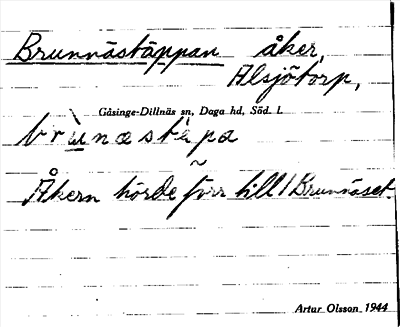 Brunnästäppan åker,
Alsjötorp,
Gåsinge-Dillnäs sn, Daga hd, Söd. l.
brùnæstépa
Åkern hörde förr till Brunnäset.
Artur Olsson 1944